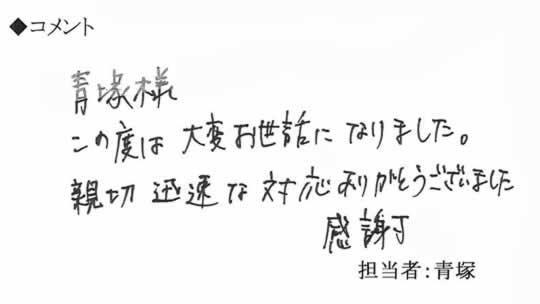 ◆コメント
青塚様
この度は 大変お世話に なりました。
親切 迅速な 対応ありがとうございました
感謝
担当者：青塚